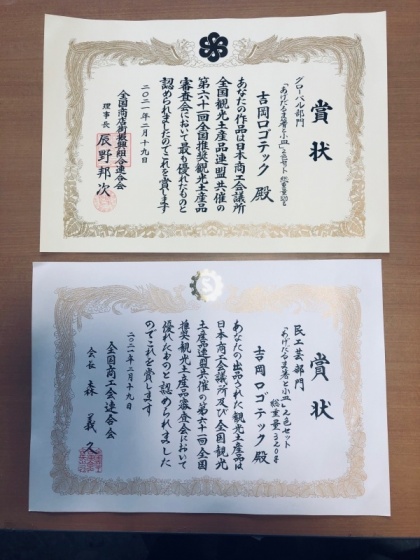 賞状
グローバル部門
「あげだるま箸と小皿」2色セット 総重量320g
吉岡ロゴテック 殿
あなたの作品は日本商工会議所
全国観光土産品連盟共催の
第六十一回全国推奨観光土産品
審査会において最も優れたものと
認められましたのでこれを賞します
二〇二一年二月十九日
全国商店街振興組合連合会
理事長 辰野邦次
賞状
民工芸部門
「あげだるま箸と小皿」2色セット
総重量320g
吉岡ロゴテック 殿
あなたの出品された観光土産品は
日本商工会議所及び全国観光
土産品連盟共催の第六十一回全国
推奨観光土産品審査会において
優れたものと認められました
のでこれを賞します
二〇二一年二月十九日
全国商工会連合会
会長 森 義久